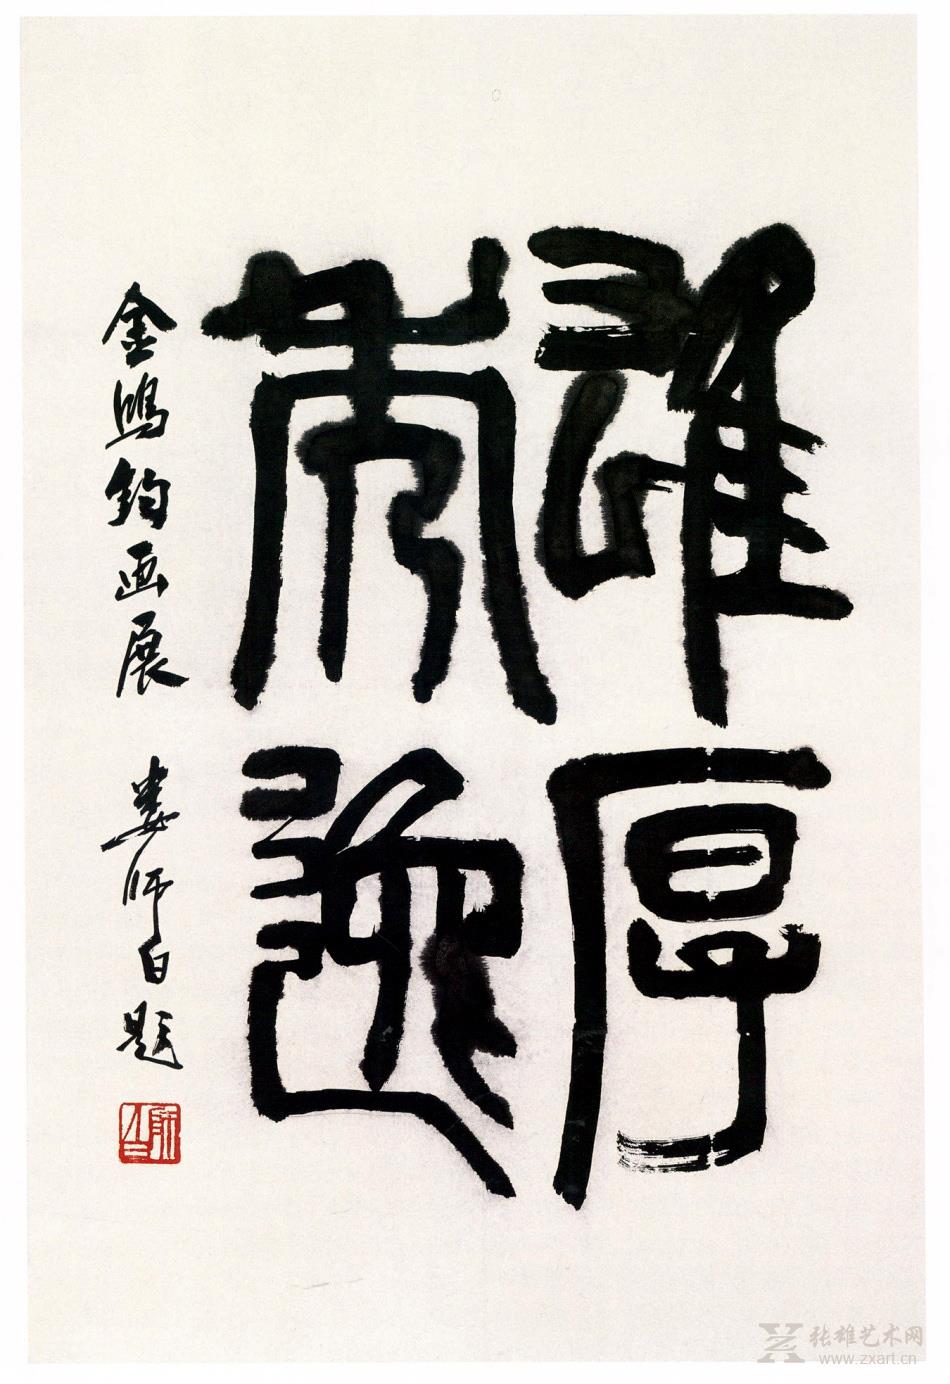 雄厚
秀逸
金鸿钧画展 娄师白题
张雄艺术网
www.zxart.cn